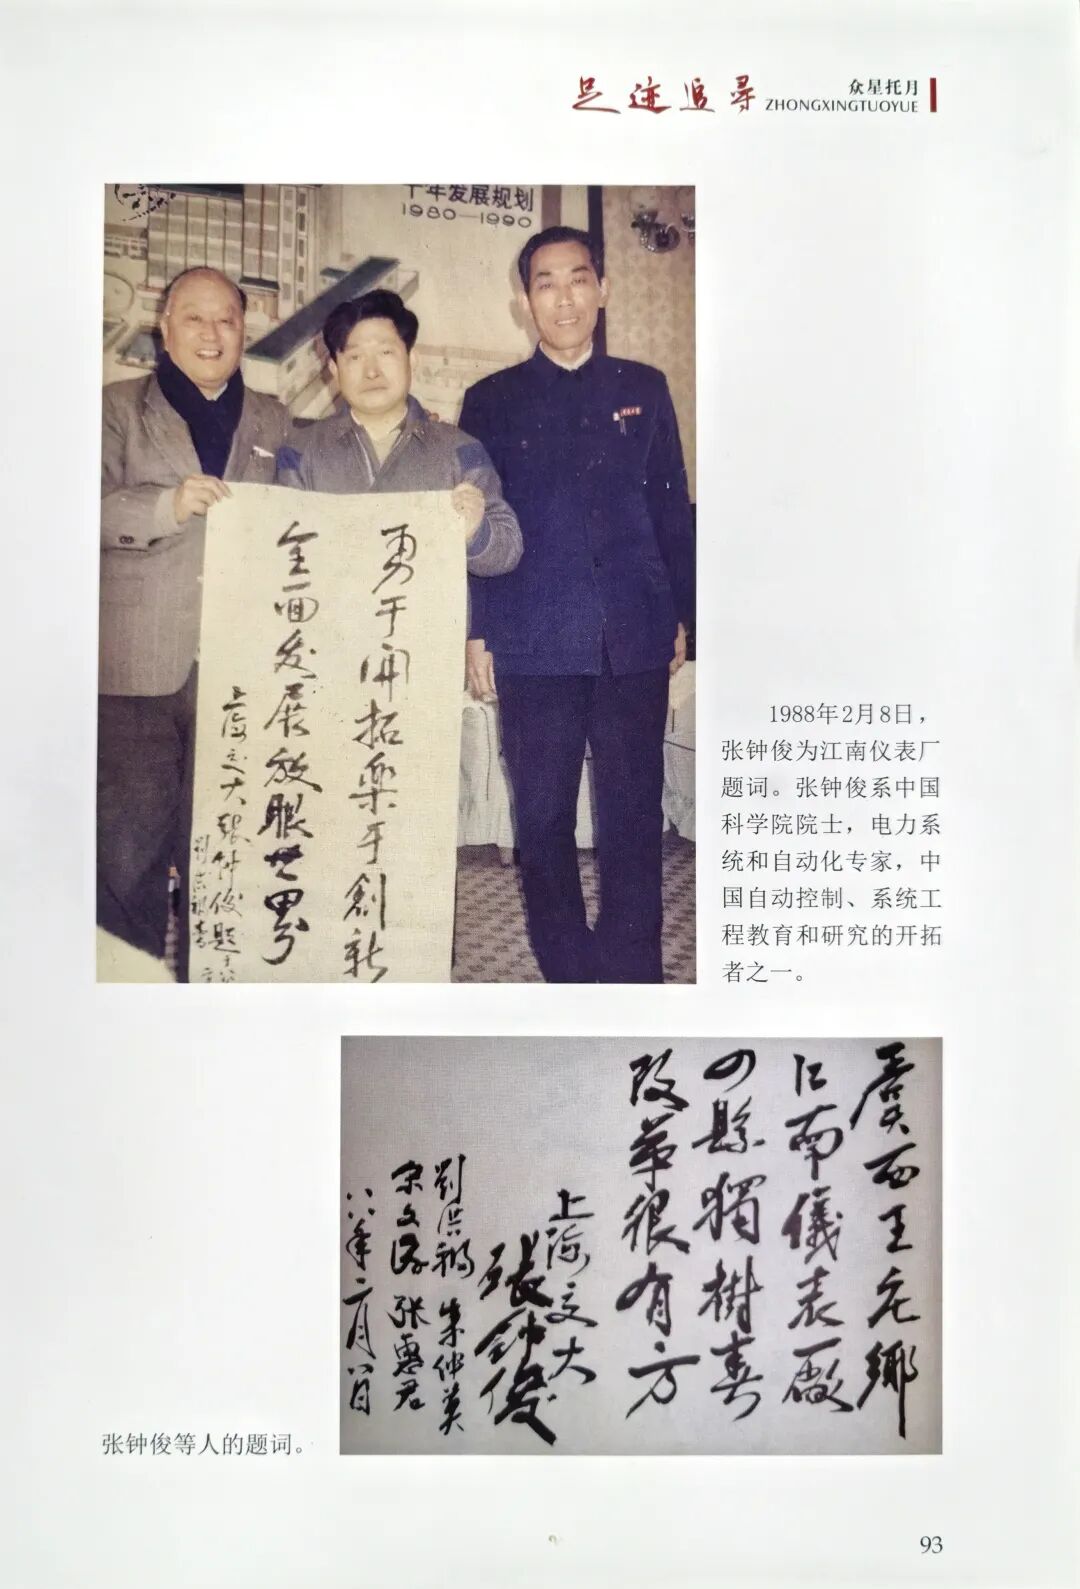 足迹追寻
众星托月
ZHONGXINGTUOYUE
十年发展规划
1980—1990
勇于开拓乐于創新
全面发展放眼世界
上海交大張钟俊题于
1988年2月8日，
张钟俊为江南仪表厂
题词。张钟俊系中国
科学院院士，电力系
统和自动化专家，中
国自动控制、系统工
程教育和研究的开拓
者之一。
虞西王充鄉
江南儀表厰
四縣獨樹春
改革很有方
上海交大
張鈡俊
劉洪禍 朱仲英
宋文 张惠君
八八年二月八日
张钟俊等人的题词。
93